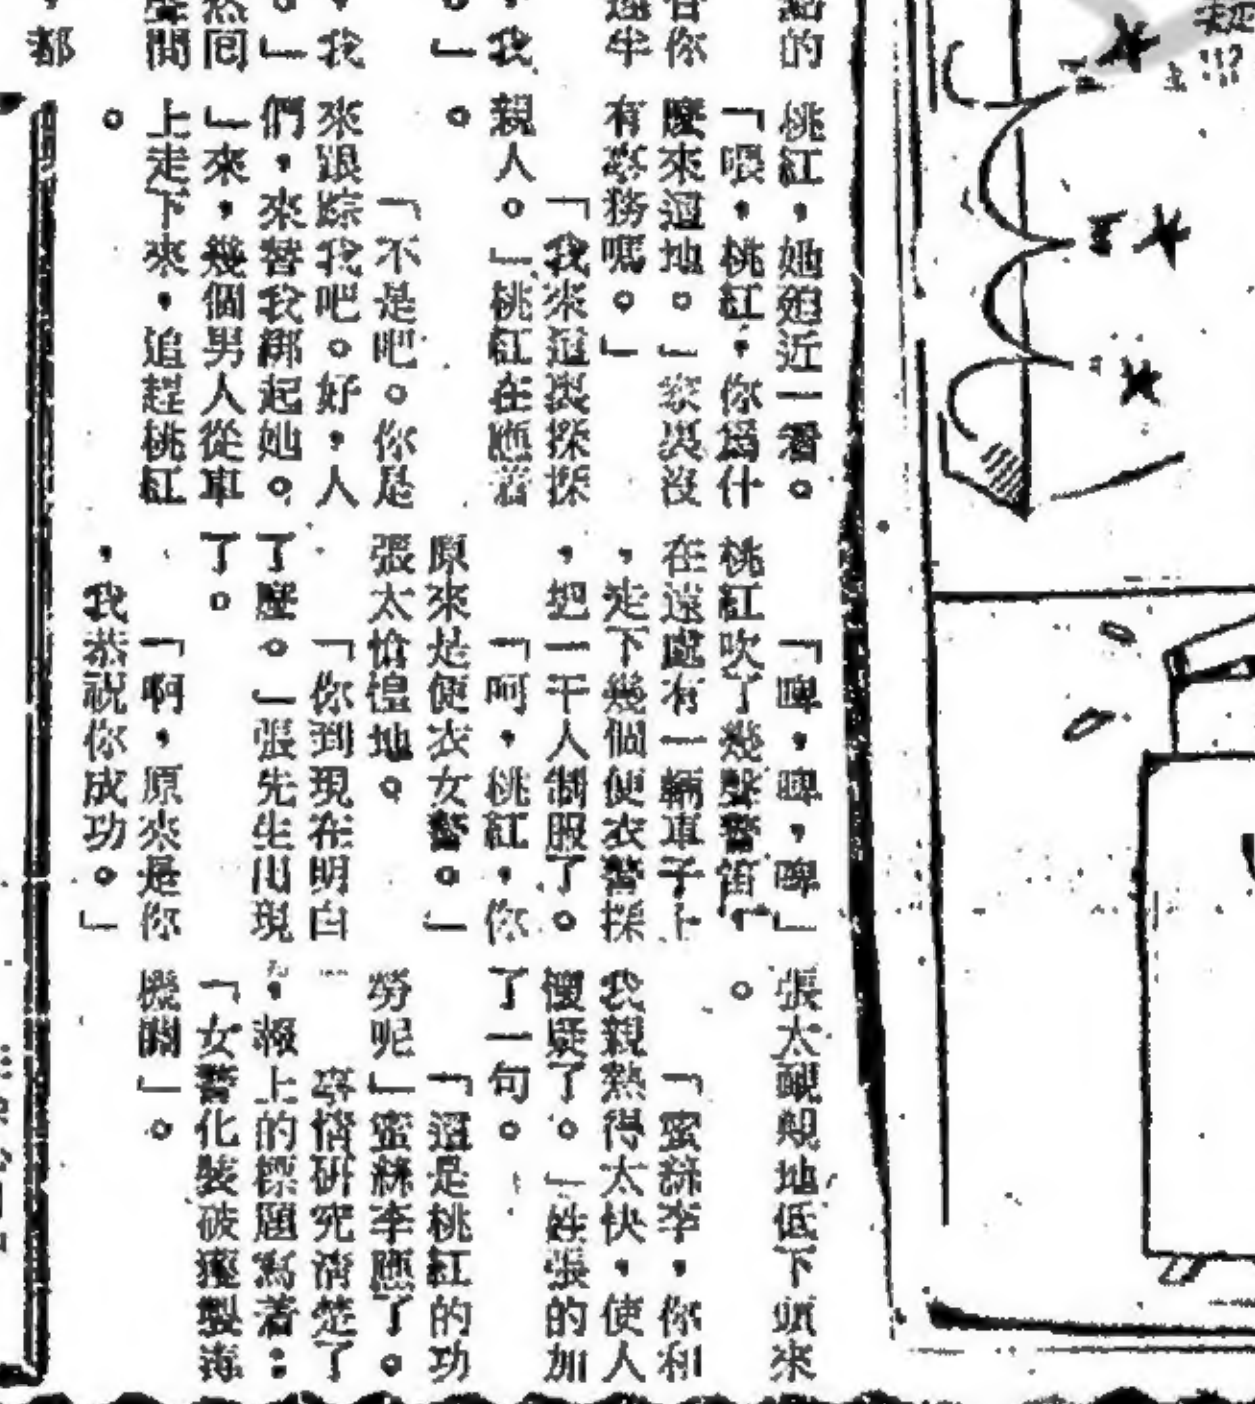 點的
甘你
遠半
我
。」
，我
。」
然囘
聲間
，都
桃紅，她趨近一看。
「喂，桃紅，你爲什
麼來這地。」家與沒
有事務嗎。」
「我來這與探探
親人。」桃紅在應着
。
「不是吧。你是
來跟踪我吧。好，人
們，來替我綁起她。
」來，幾個男人從車
上走下來，追趕桃紅
。
「啤，啤，啤」
桃紅吹了幾聲警笛，
在遠處有一輛車子上
，走下幾個便衣警探
，把一干人制服了。
「呵，桃紅，你
原來是便衣女警。」
張太愴惶地。
「你到現在明白
了麼。」張先生出現
了。
「啊，原來是你
，我恭祝你成功。」
張太靦覥地低下頭來
。
「蜜絲李，你和
我親熱得太快，使人
懷疑了。」姓張的加
了一句。
「這是桃紅的功
勞呢」蜜絲李應了。
事情研究清楚了
，報上的標題寫着：
「女警化裝破獲製毒
機關」。